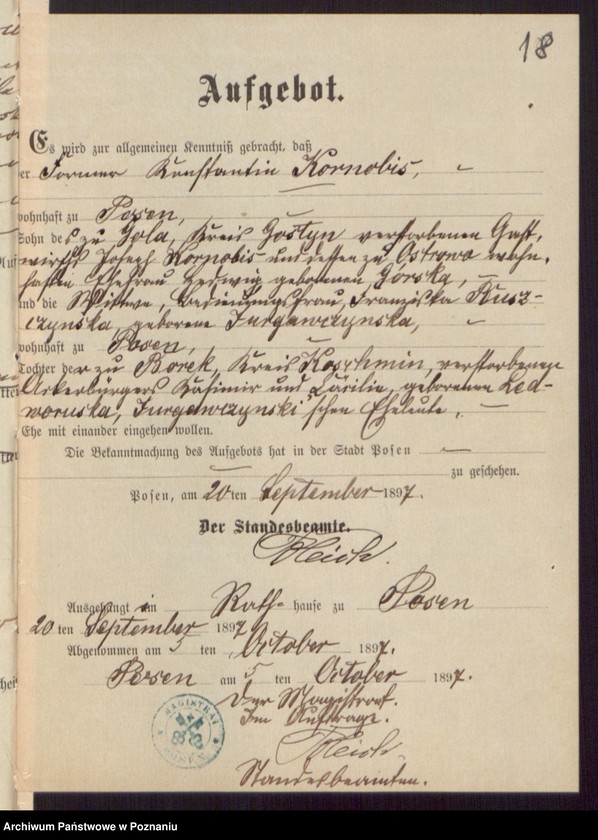 18
Aufgebot.
Es wird zur allgemeinen Kenntniß gebracht, daß
er Former Konstantin Kornobis,
wohnhaft zu Posen,
Sohn des zu Gola, Kreis Gostyn verstorbenen Gast-
wirths Joseph Kornobis und dessen zu Ostrowo wohn-
haften Ehefrau Hedwig geborenen Gorska,
und die Wittwe, Bedienungsfrau, Franziska Kusz-
czynska, geborene Jurgawczynska,
wohnhaft zu Posen,
Tochter der zu Borek, Kreis Koschmin, verstorbenen
Ackerbürgers Kasimir und Cäcilie, geborenen Led-
woruska, Jurgawczynski'schen Eheleute,
Ehe mit einander eingehen wollen.
Die Bekanntmachung des Aufgebots hat in der Stadt Posen
zu geschehen.
Posen, am 20 ten September 1897.
Der Standesbeamte.
Ausgehängt im Rath- hause zu Posen
20 ten September 1897
Abgenommen am 5 ten October 1897.
Posen am 5 ten October 1897.
Der Magistrat.
Im Auftrage.
Standesbeamten.
MAGISTRAT
POSEN
Archiwum Państwowe w Poznaniu